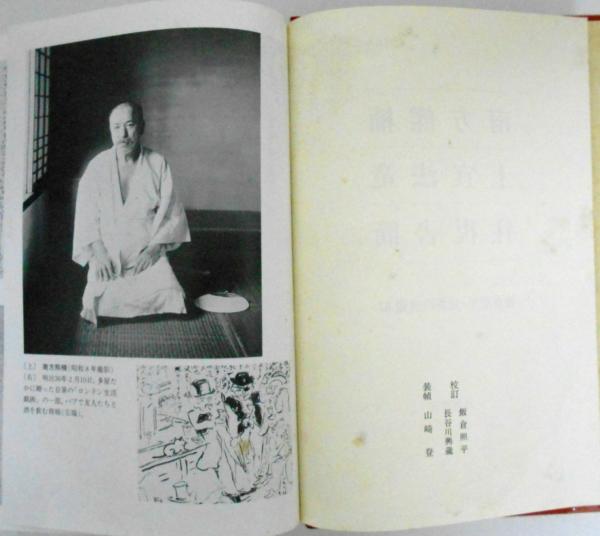 (上) 南方熊楠(昭和4年撮影)
(右) 明治36年2月10日、多屋た
かに贈った自筆の「ロンドン生活
戯画」の一部。パブで友人たちと
酒を飲む南楠(左端)。
校訂 飯倉照平
長谷川興蔵
装幀 山崎登
南方熊楠
土宜法竜
往復書簡